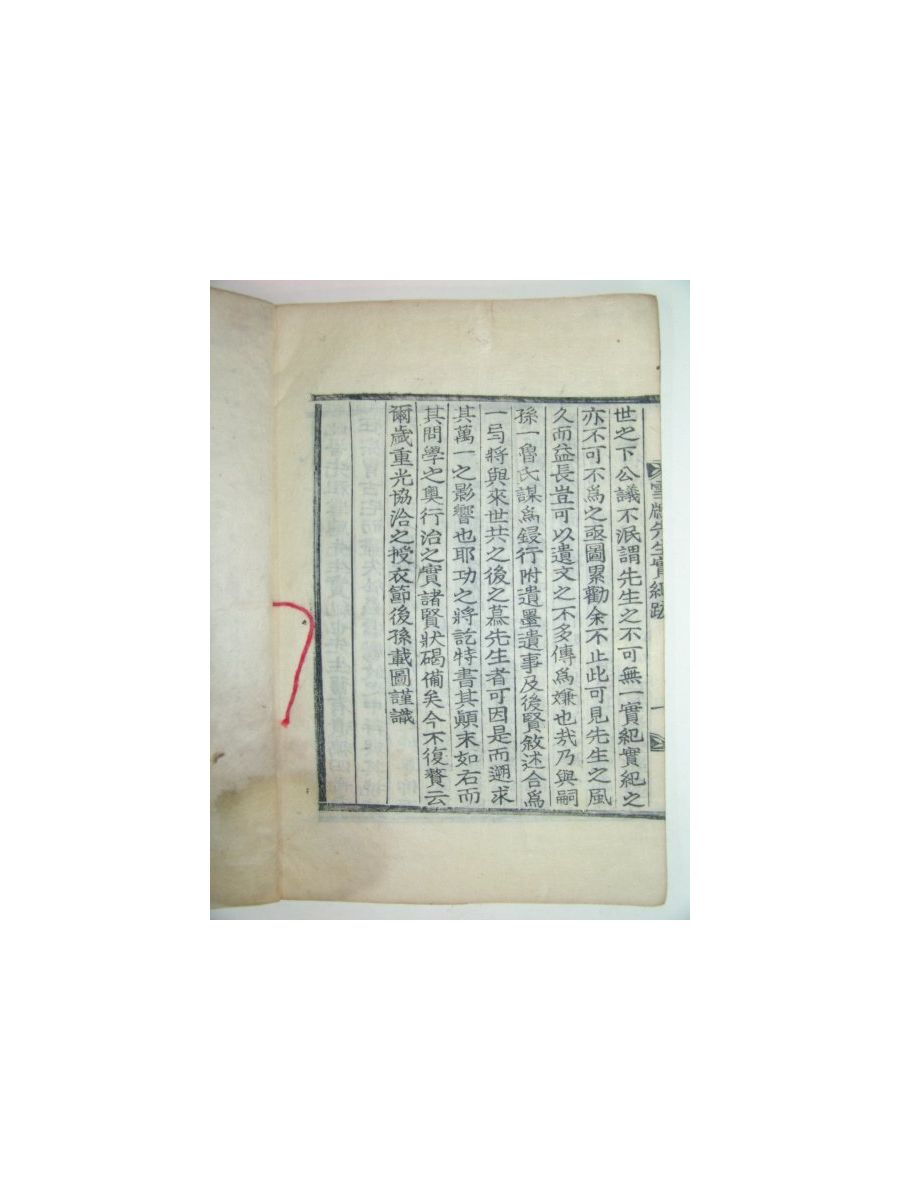 先生實紀跋
一
世之下公議不泯謂先生之不可無一實紀實紀之
亦不可不爲之亟圖累勸余不止此可見先生之風
久而益長豈可以遺文之不多傳爲嫌也㢤乃與嗣
孫一魯氏謀爲鋟行附遺墨遺事及後賢敘述合爲
一弓將與來世共之後之慕先生者可因是而遡求
其萬一之影響也耶功之將訖特書其顚末如右而
其問學之奧行治之實諸賢狀碣備矣今不復贅云
爾歲重光協洽之授衣節後孫載圖謹識